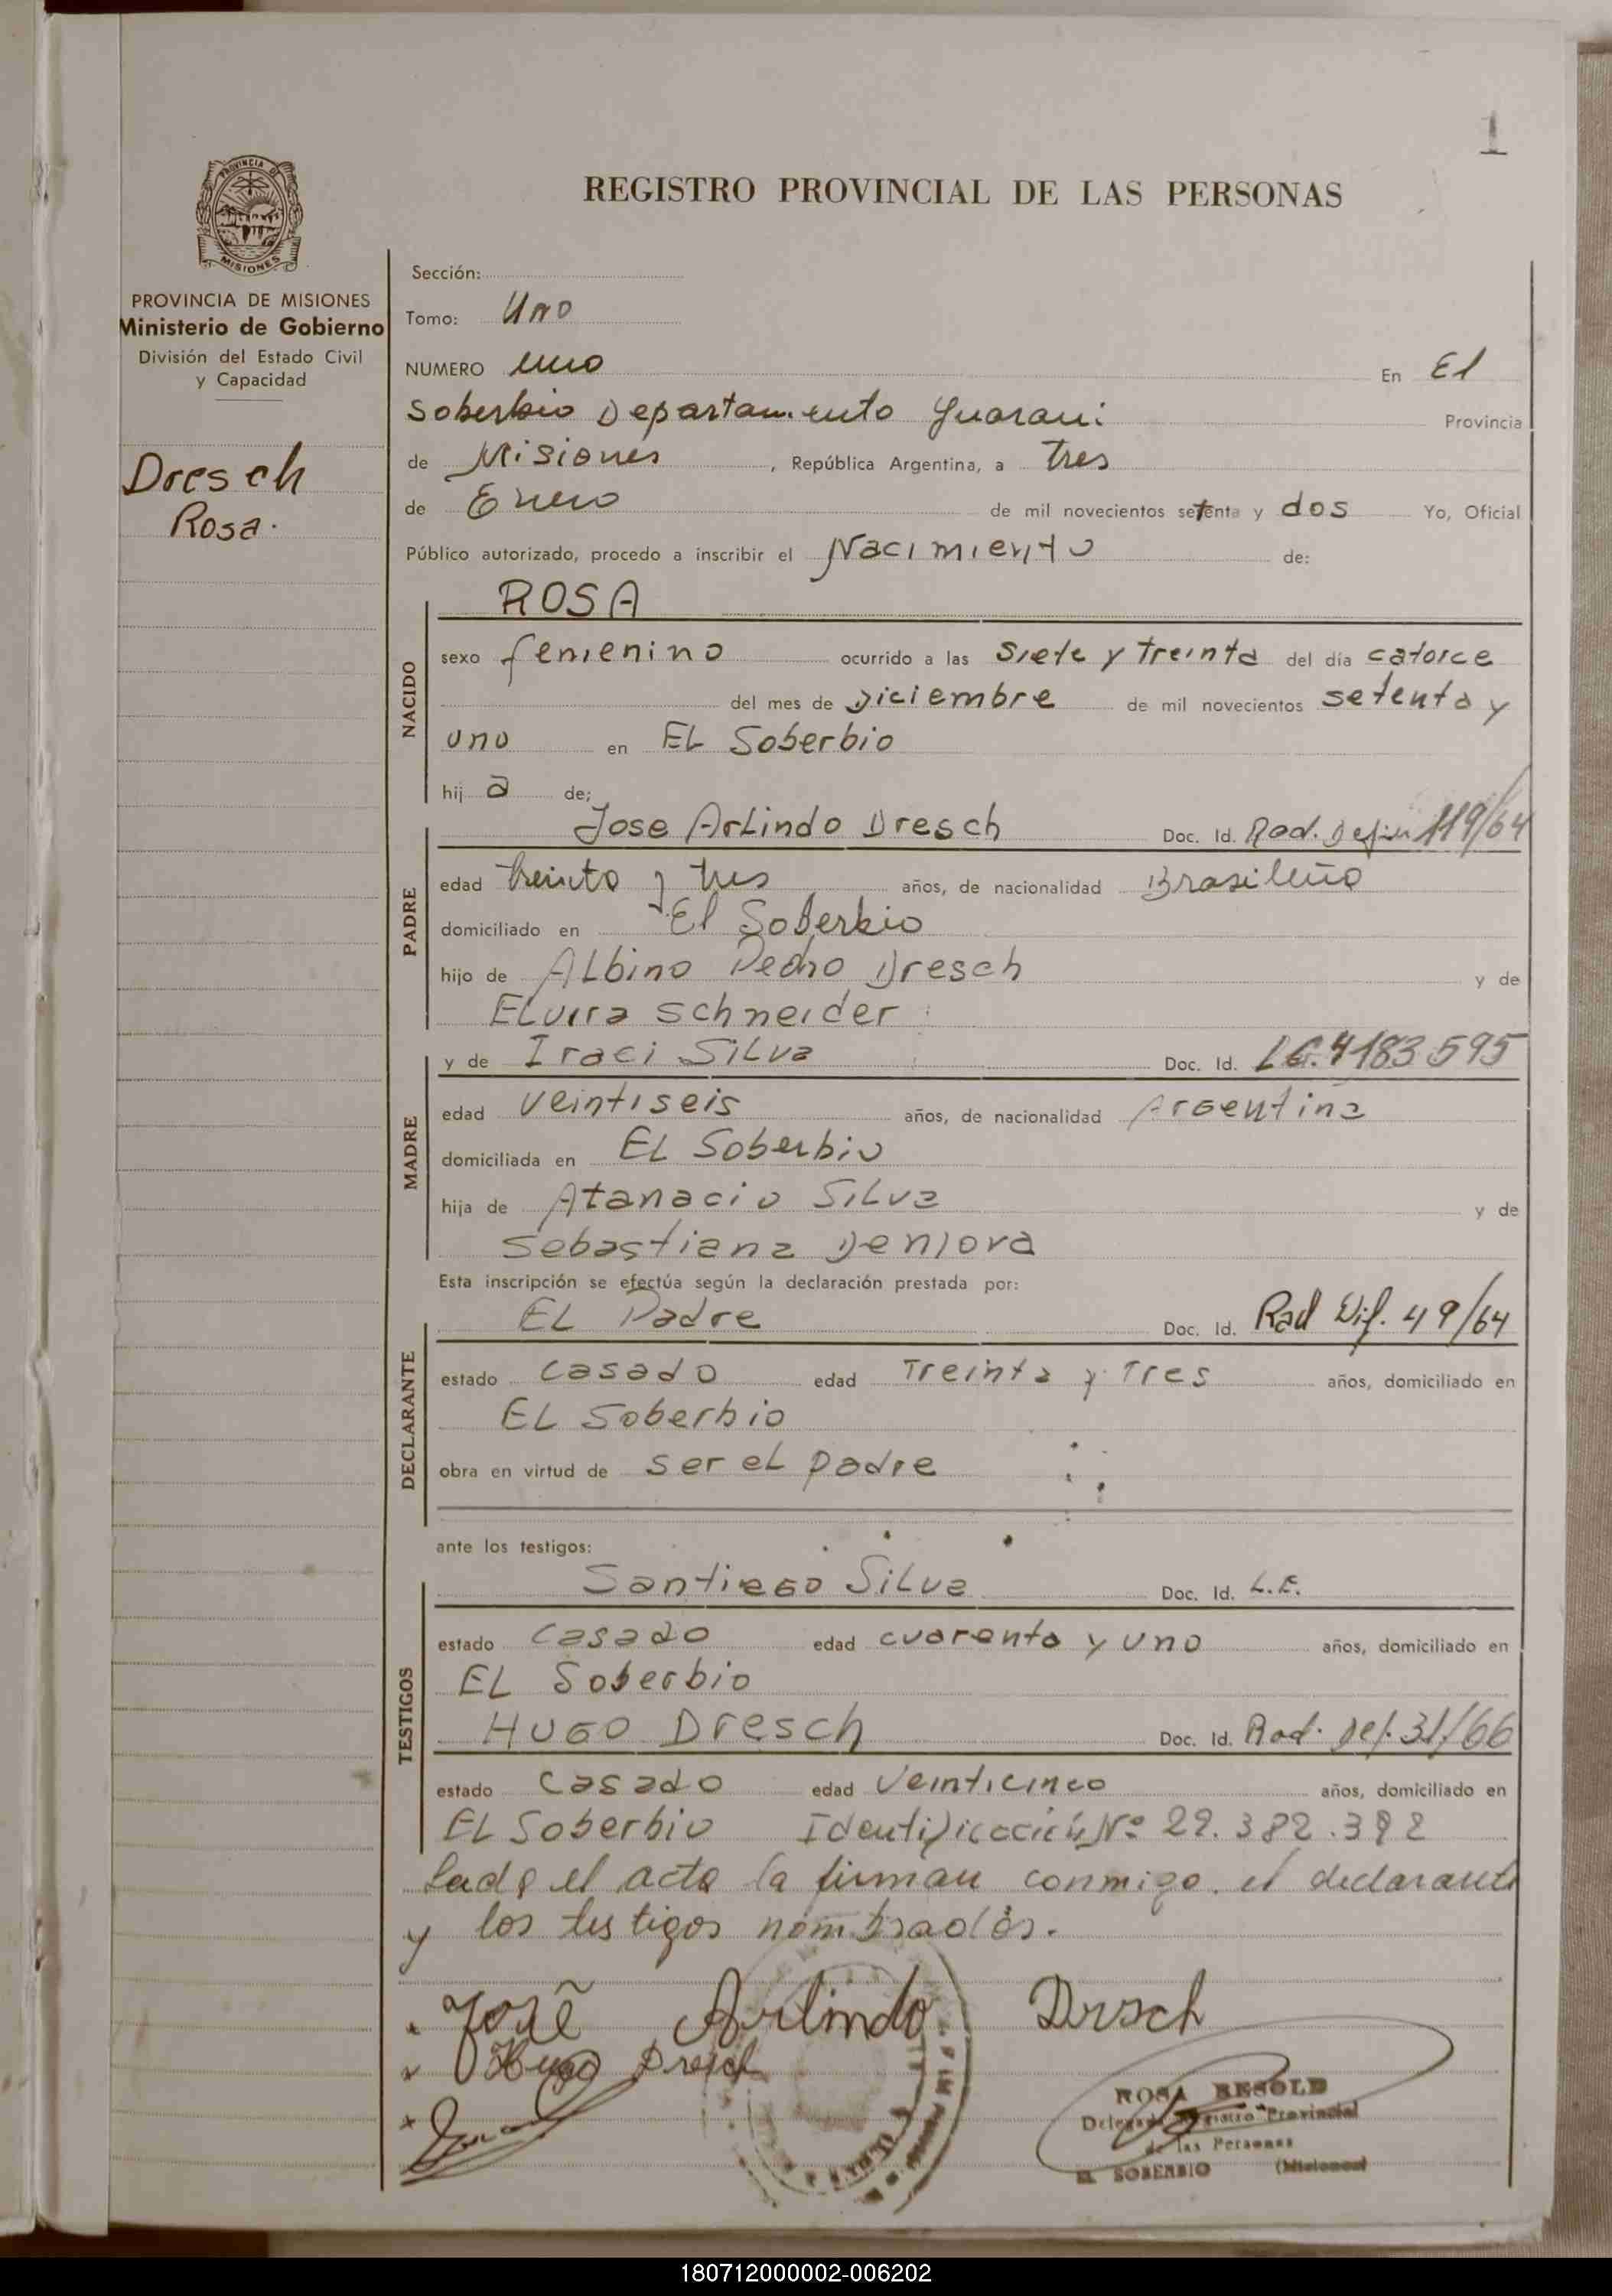 1
REGISTRO PROVINCIAL DE LAS PERSONAS
PROVINCIA DE MISIONES
PROVINCIA DE MISIONES
Ministerio de Gobierno
División del Estado Civil
y Capacidad
Dresch
Rosa.
Sección:
Tomo: Uno
NUMERO uno En El
Soberbio Departamento Guarani Provincia
de Misiones, República Argentina, a tres
de Enero de mil novecientos setenta y dos Yo, Oficial
Público autorizado, procedo a inscribir el Nacimiento de:
NACIDO
ROSA
sexo femenino ocurrido a las siete y treinta del día catorce
del mes de Diciembre de mil novecientos setenta y
uno en EL Soberbio
hij a de;
PADRE
Jose Arlindo Dresch Doc. Id. Rad. 119/64
edad treinta y tres años, de nacionalidad Brasileño
domiciliado en El Soberbio
hijo de Albino Pedro Dresch y de
Elvira Schneider
MADRE
y de Iraci Silva Doc. Id. 4183595
edad veintiseis años, de nacionalidad Argentina
domiciliada en EL Soberbio
hija de Atanacio Silva y de
Sebastiana
Esta inscripción se efectúa según la declaración prestada por:
DECLARANTE
EL Padre Doc. Id. Rad 49/64
estado casado edad Treinta y Tres años, domiciliado en
EL Soberbio
obra en virtud de ser el padre
ante los testigos:
TESTIGOS
Santiago Silva Doc. Id. L.E.
estado casado edad cuarenta y uno años, domiciliado en
EL Soberbio
HUGO Dresch Doc. Id. Rad. Def. 31/66
estado casado edad veinticinco años, domiciliado en
EL Soberbio Identificación Nº 22.382.392
el acta la firman conmigo el declarante
y los testigos nombrados.
José Arlindo Drsch
Hugo Dresch
ROSA RESOLD
Delegada Registro Provincial
de las Personas
EL SOBERBIO (Misiones)
180712000002-006202